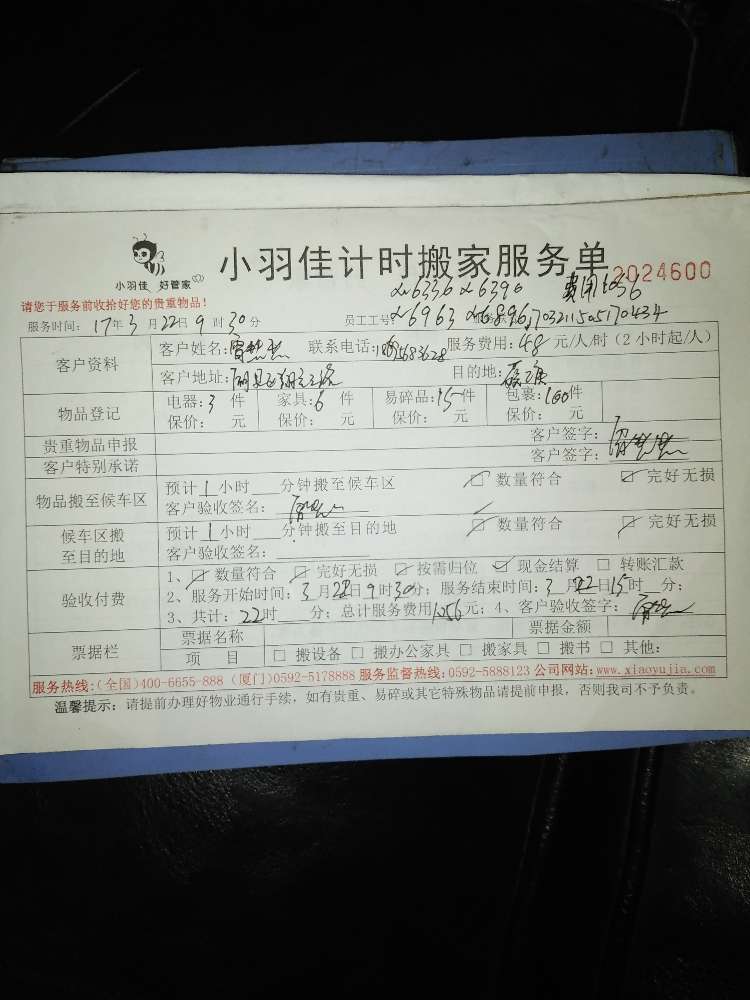 小羽佳计时搬家服务单
小羽佳 好管家
2024600
请您于服务前收拾好您的贵重物品！
6336 6390 费用1056
服务时间：17年3月22日9时30分 员工工号： 6963 6896
客户资料
客户姓名： 联系电话： 服务费用：48元/人/时（2小时起/人）
客户地址： 目的地：
物品登记
电器：3件 家具：6件 易碎品：15件 包裹：100件
保价： 元 保价： 元 保价： 元 保价： 元
贵重物品申报 客户签字：
客户特别承诺 客户签字：
物品搬至候车区
预计1小时 分钟搬至候车区 数量符合 完好无损
客户验收签名：
候车区搬至目的地
预计1小时 分钟搬至目的地 数量符合 完好无损
客户验收签名：
验收付费
1、 数量符合 完好无损 按需归位 现金结算 转账汇款
2、服务开始时间：3月22日9时30分；服务结束时间：3月22日15时 分；
3、共计：22时 分；总计服务费用1056元；4、客户验收签字：
票据栏
票据名称 票据金额
项 目 搬设备 搬办公家具 搬家具 搬书 其他：
服务热线：(全国)400-6655-888 (厦门)0592-5178888 服务监督热线：0592-5888123 公司网站：www.xiaoyujia.com
温馨提示：请提前办理好物业通行手续，如有贵重、易碎或其它特殊物品请提前申报，否则我司不予负责。